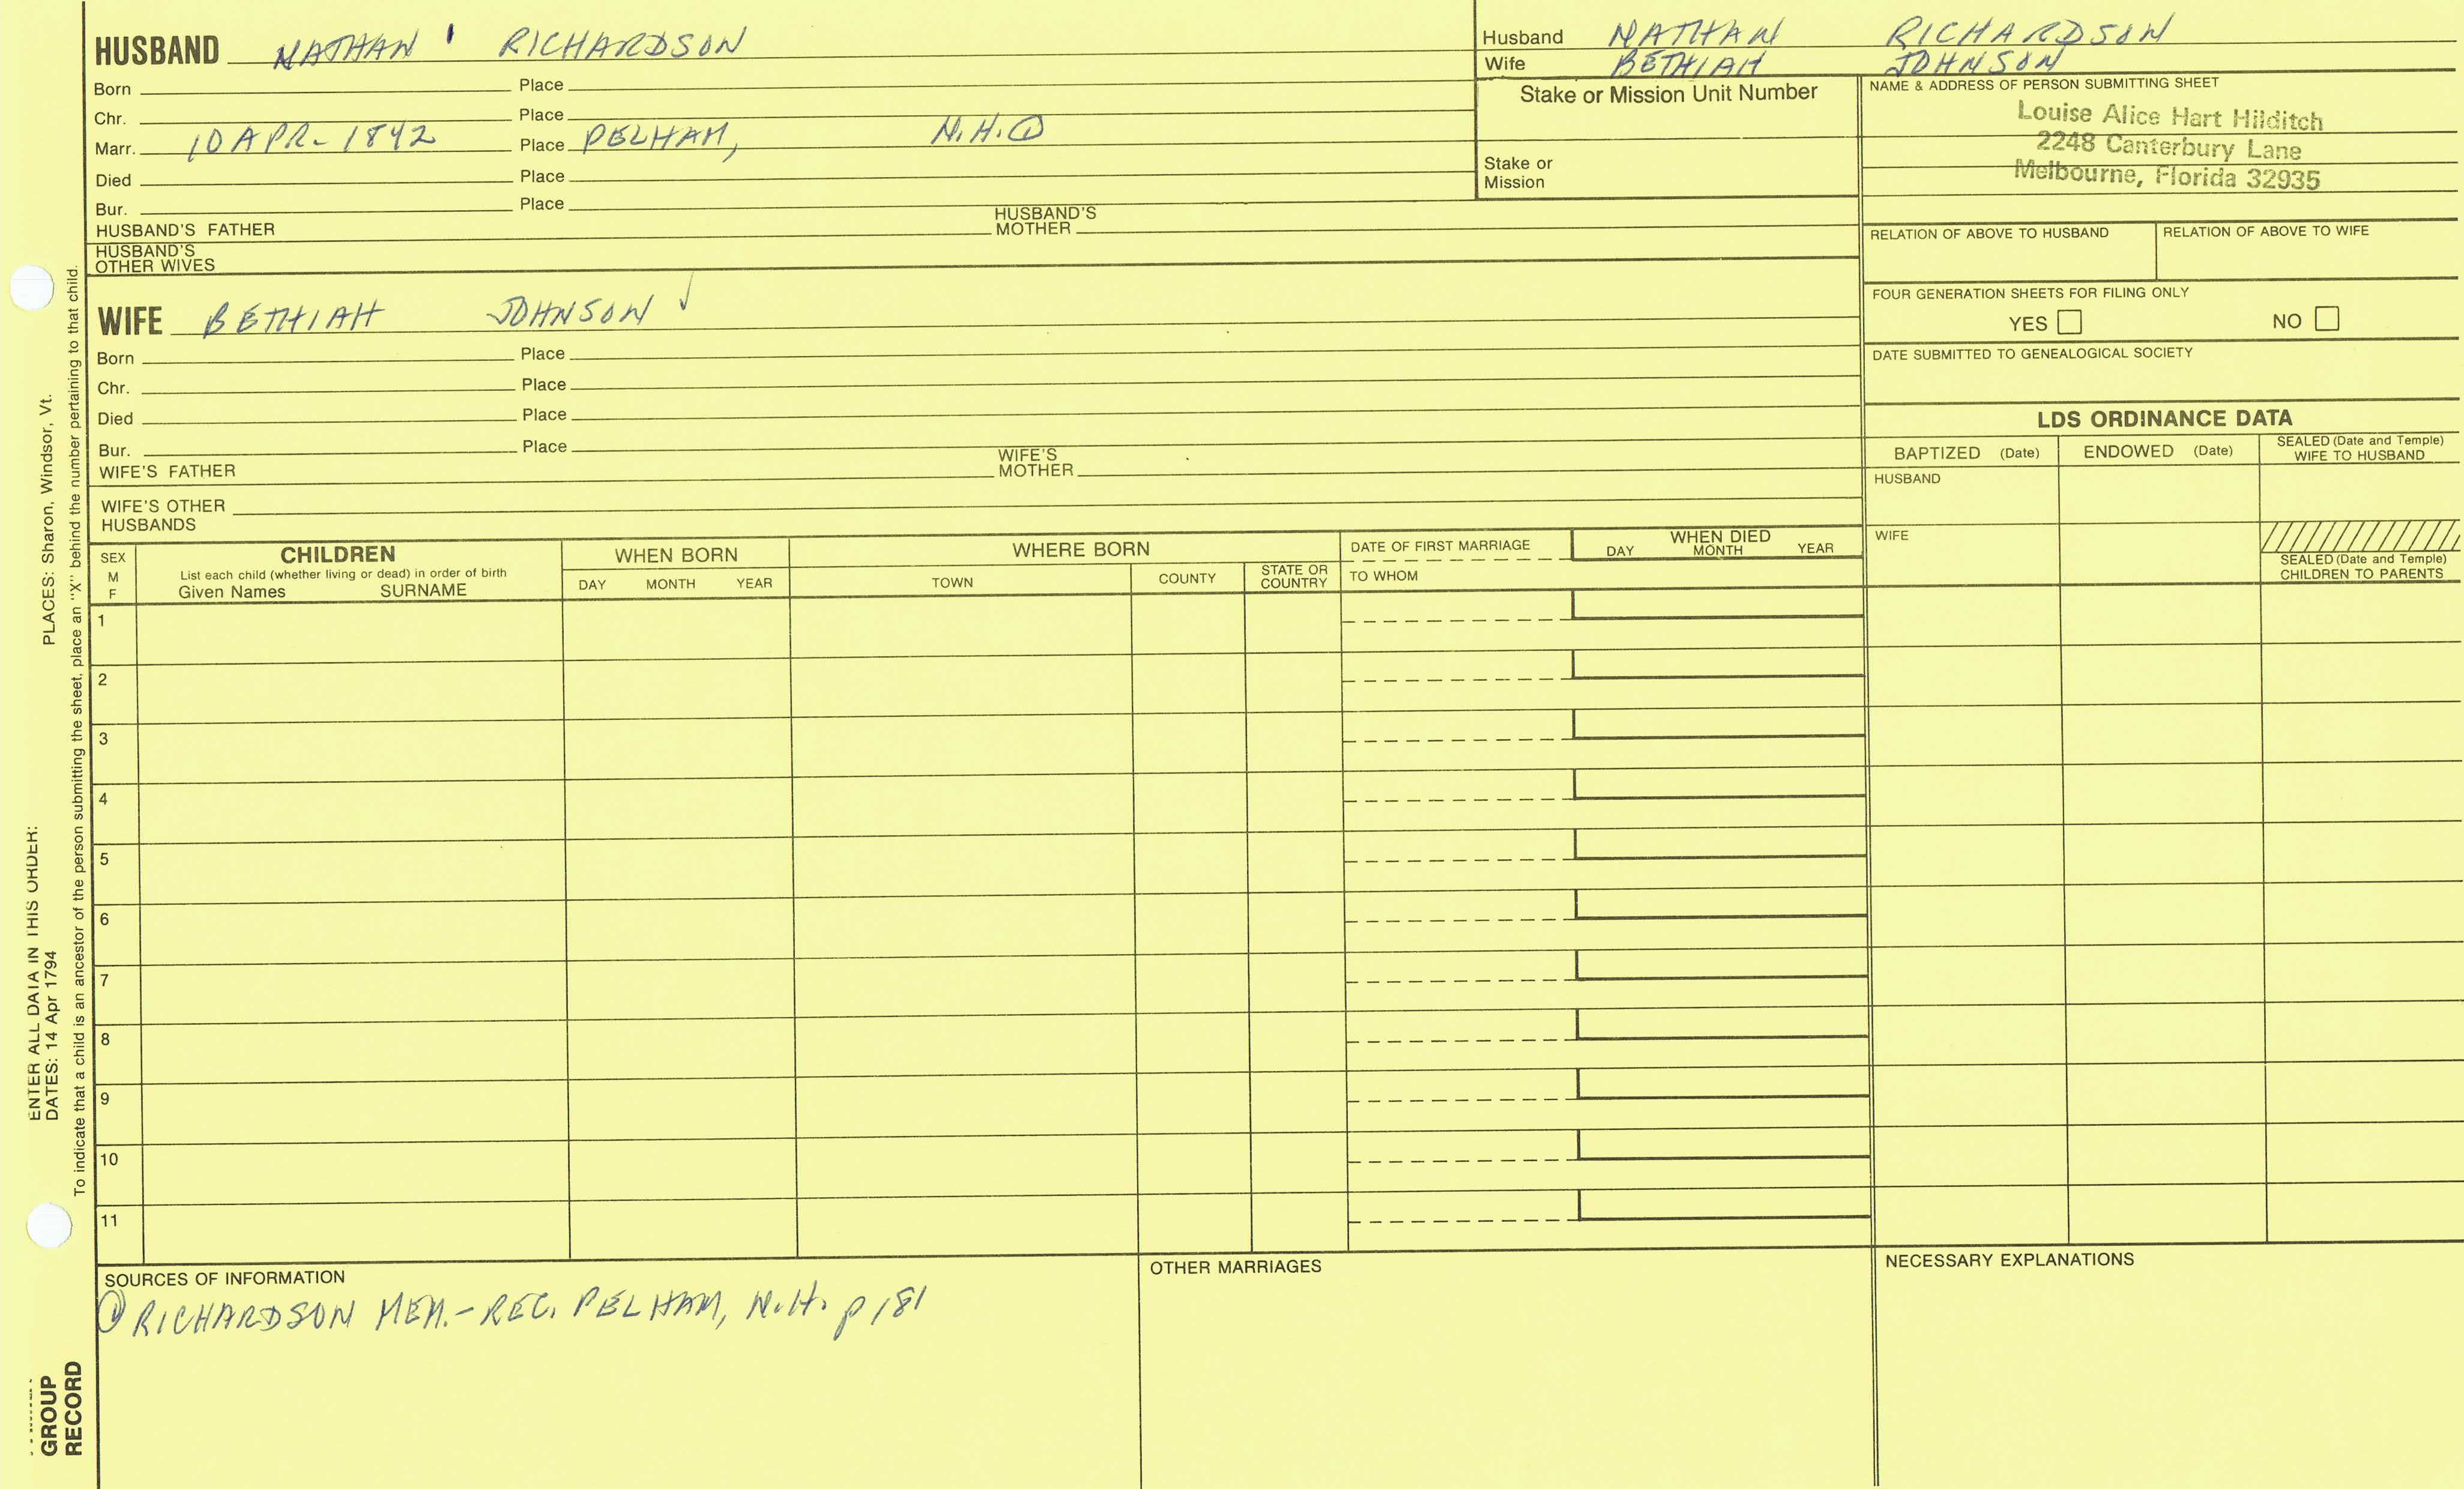 HUSBAND NATHAN RICHARDSON
Born Place
Chr. Place
Marr. 10 APR- 1842 Place PELHAM, N.H. ①
Died Place
Bur. Place
HUSBAND'S FATHER HUSBAND'S MOTHER
HUSBAND'S OTHER WIVES
Husband NATHAN RICHARDSON
Wife BETHIAH JOHNSON
Stake or Mission Unit Number
Stake or Mission
NAME & ADDRESS OF PERSON SUBMITTING SHEET
Louise Alice Hart Hilditch
2248 Canterbury Lane
Melbourne, Florida 32935
RELATION OF ABOVE TO HUSBAND RELATION OF ABOVE TO WIFE
FOUR GENERATION SHEETS FOR FILING ONLY
YES NO
DATE SUBMITTED TO GENEALOGICAL SOCIETY
WIFE BETHIAH JOHNSON ✓
Born Place
Chr. Place
Died Place
Bur. Place
WIFE'S FATHER WIFE'S MOTHER
WIFE'S OTHER HUSBANDS
LDS ORDINANCE DATA
BAPTIZED (Date) ENDOWED (Date) SEALED (Date and Temple) WIFE TO HUSBAND
HUSBAND
WIFE
SEALED (Date and Temple) CHILDREN TO PARENTS
SEX M F
CHILDREN
List each child (whether living or dead) in order of birth
Given Names SURNAME
WHEN BORN
DAY MONTH YEAR
WHERE BORN
TOWN COUNTY STATE OR COUNTRY
DATE OF FIRST MARRIAGE
TO WHOM
WHEN DIED
DAY MONTH YEAR
1
2
3
4
5
6
7
8
9
10
11
SOURCES OF INFORMATION
① RICHARDSON MEM.-REC. PELHAM, N.H. p 181
OTHER MARRIAGES
NECESSARY EXPLANATIONS
ENTER ALL DATA IN THIS ORDER:
DATES: 14 Apr 1794 PLACES: Sharon, Windsor, Vt.
To indicate that a child is an ancestor of the person submitting the sheet, place an "X" behind the number pertaining to that child.
GROUP
RECORD